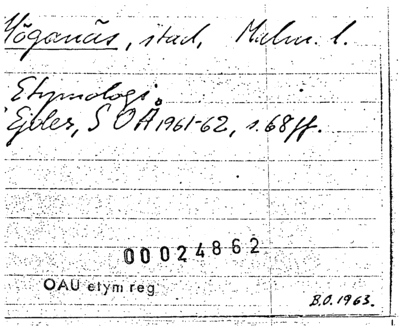 Höganäs, stad, Malm. l.
Etymologi.
Ejder, SOÅ 1961-62, s. 68 ff.
00024862
OAU etym reg
B.O. 1963.